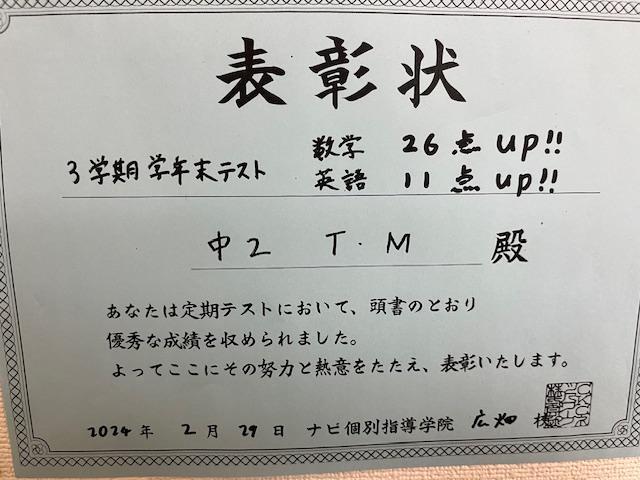 表彰状
3学期学年末テスト 数学 26点up!!
英語 11点up!!
中2 T.M 殿
あなたは定期テストにおいて、頭書のとおり
優秀な成績を収められました。
よってここにその努力と熱意をたたえ、表彰いたします。
2024年 2月 29日 ナビ個別指導学院 広畑 校